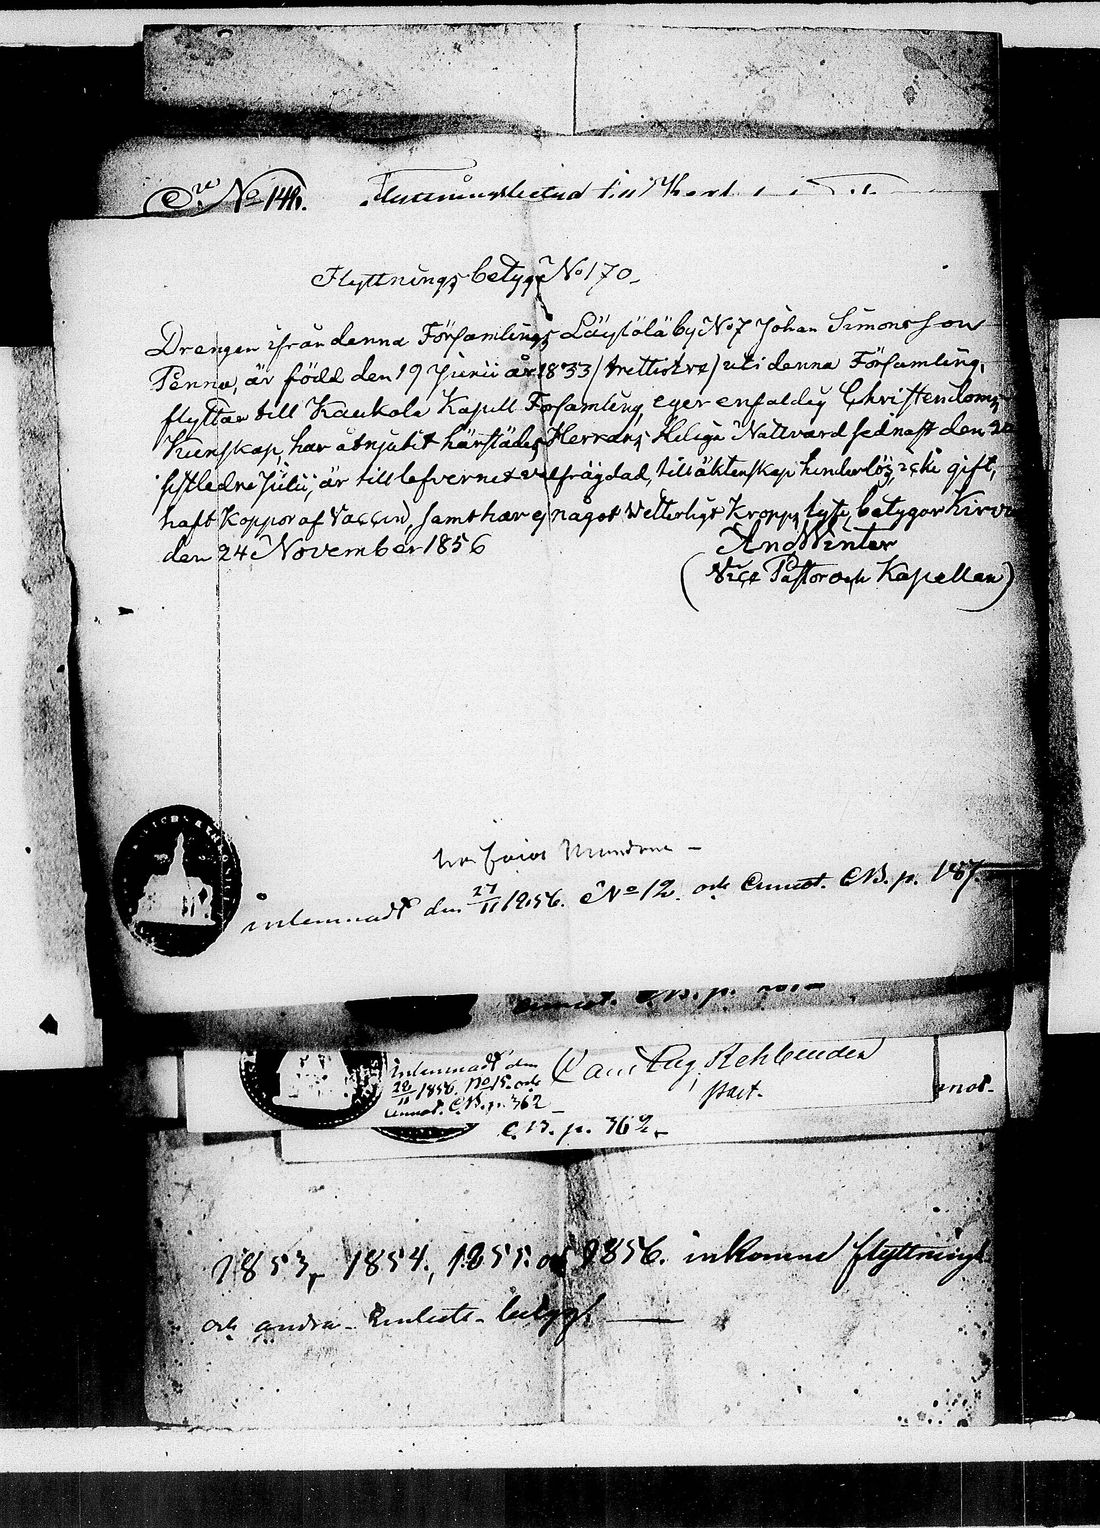 No 148.
Flyttningsbetyg No 170.
Drengen ifrån denna Församlings Läyliölä by No 7 Johan Simonsson
Penna, är född den 19 Junii år 1833 / trettiotre / uti denna Församling,
flyttar till Kaukola Kapell Församling, eger enfaldig Christendoms
Kunskap, har åtnjutit härstädes Herrans Heliga Nattvard sednast den
sistledne Julii, är till lefvernet välfrägdad, till äktenskap hinderlös, icke gift,
haft Koppor af Vaccin, samt har ej något Vetterligt Kropps lyte, betygar Kirvu
den 24 November 1856
And Winter
(Vice Pastor och Kapellan)
inlemnadt den 27/11 1856. No 12. och Annot. C.B. p. 187.
Annot. C.B. p.
Inlemnadt den
28/11 1856. No 15. och
Annot. C.B. p. 362
Rehbinder
past.
C.B. p. 362
1853, 1854, 1855 och 1856. inkomne flyttnings
och andra Embets betyg